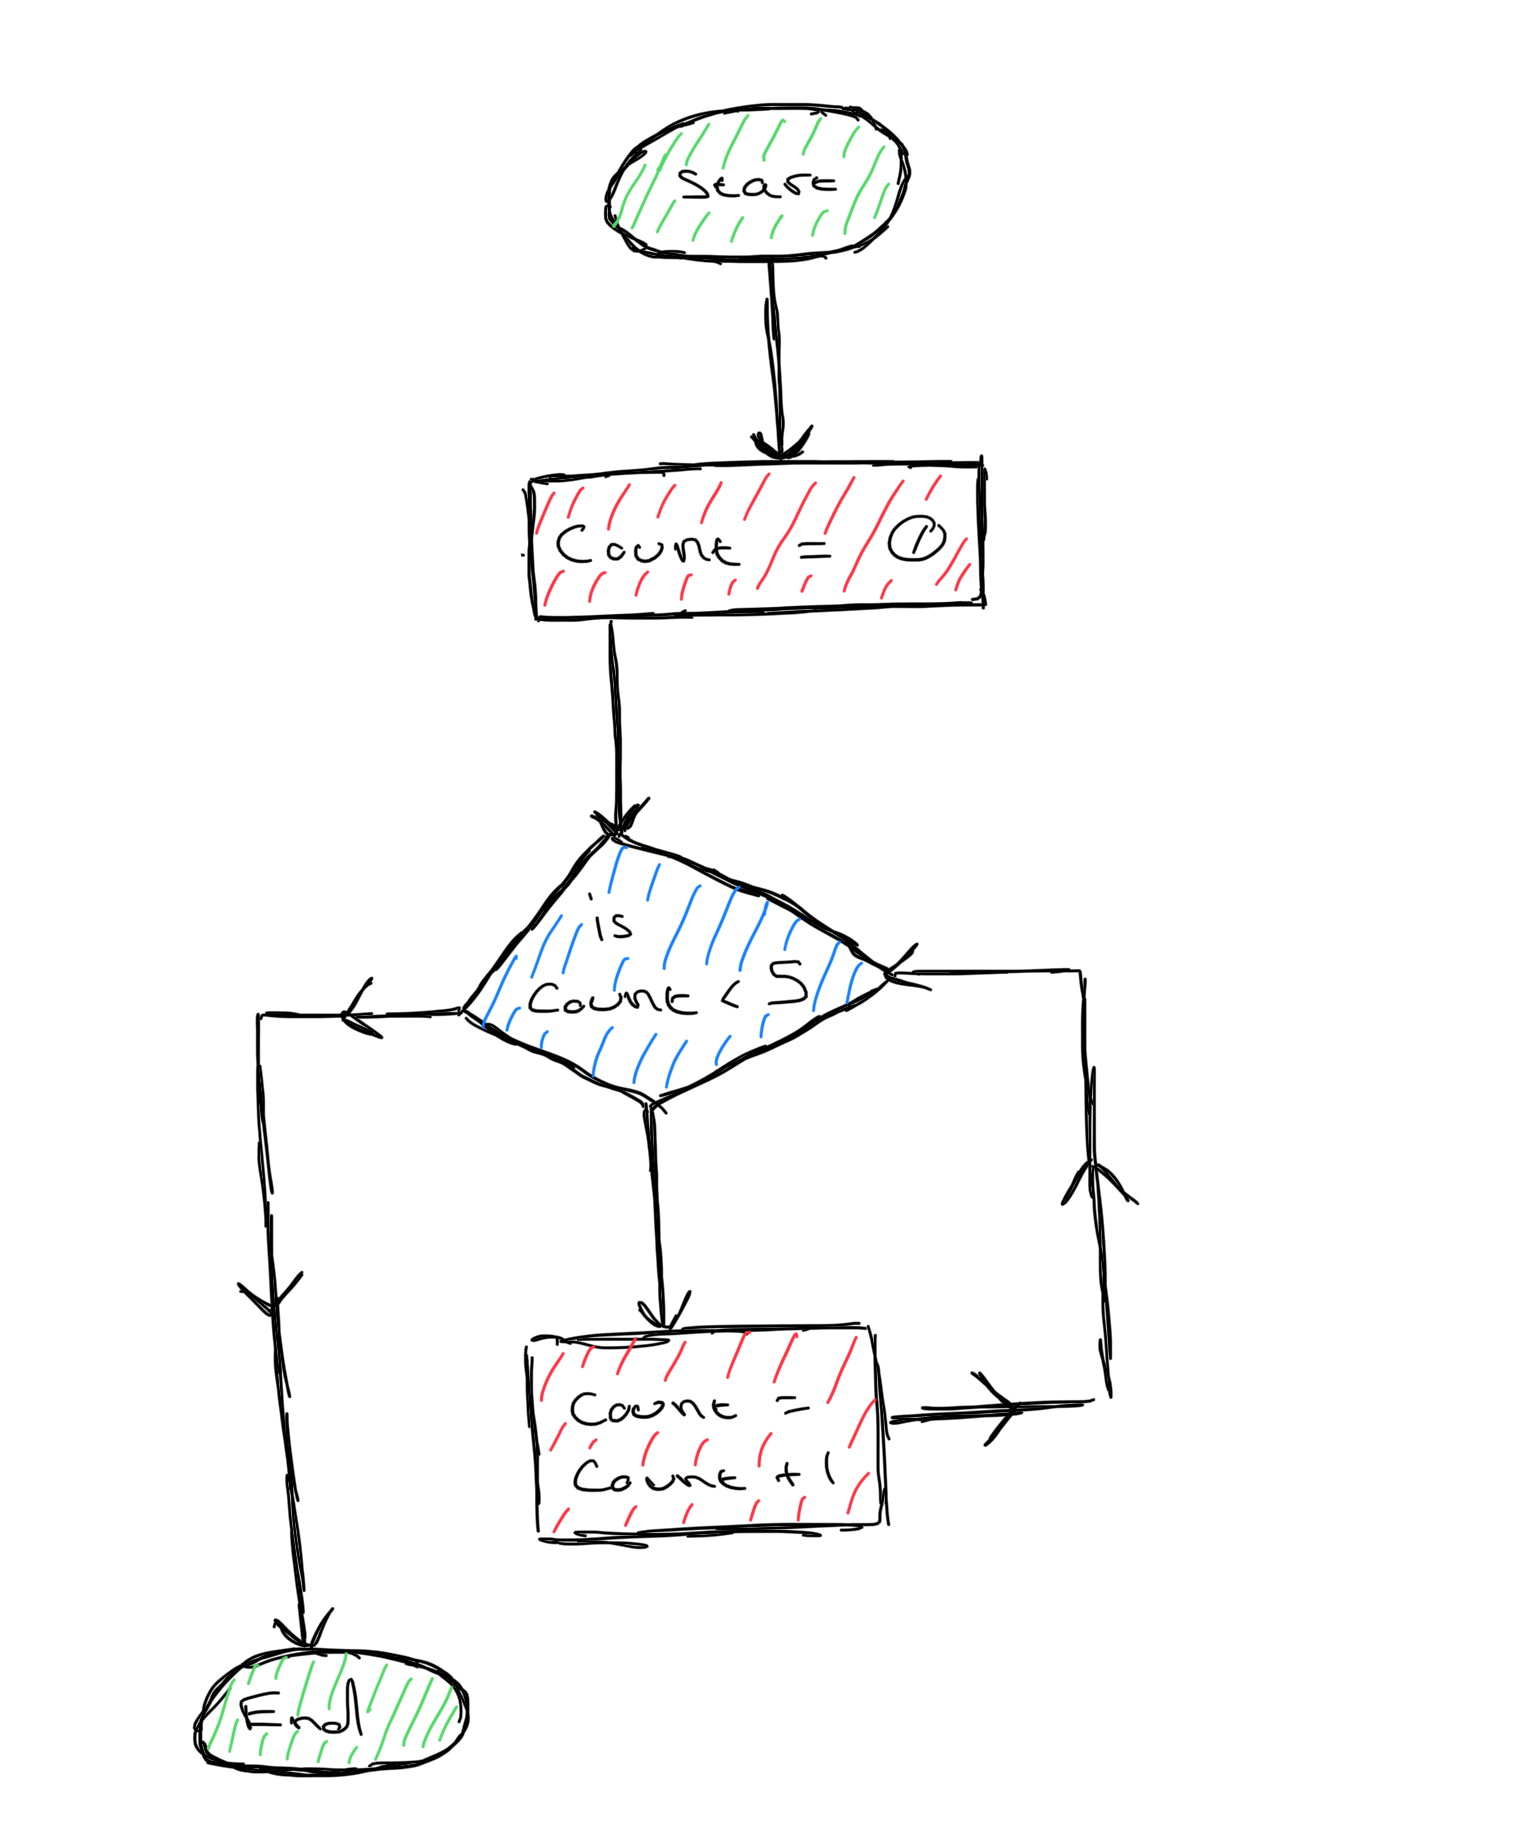 Start
Count = 0
is
Count < 5
Count =
Count + 1
End